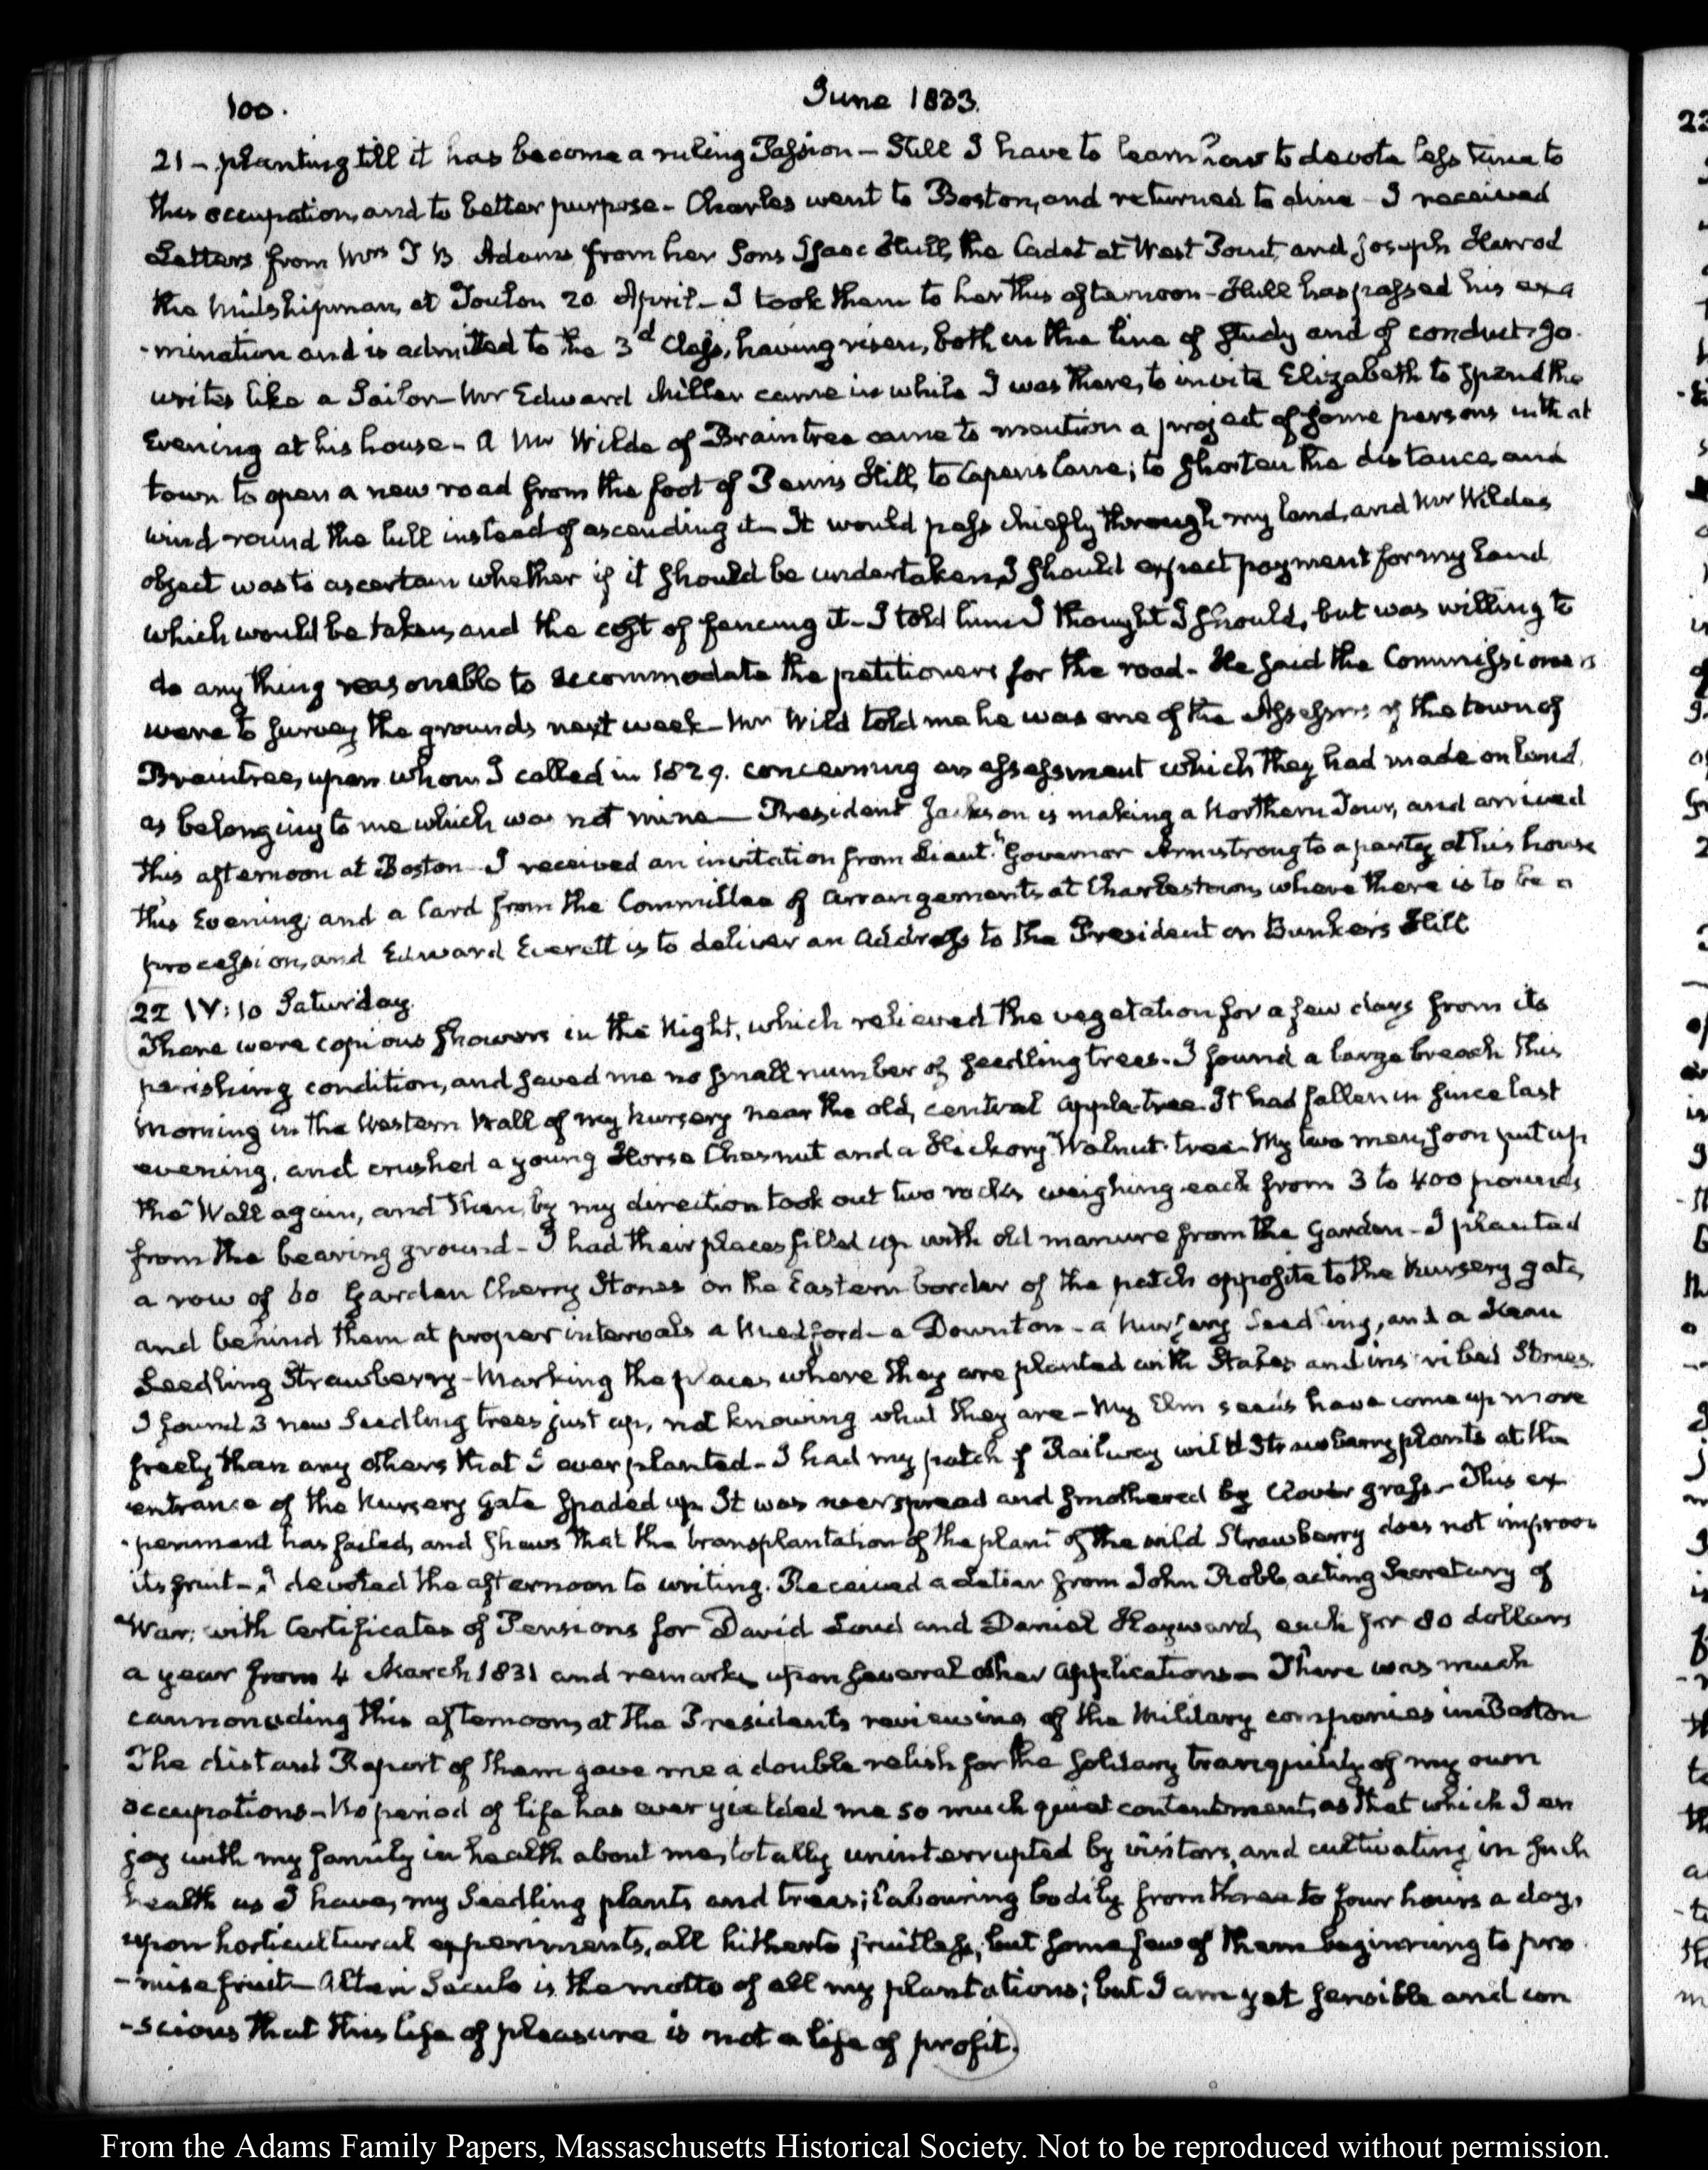 100.
June 1833.
21 - planting till it has become a ruling Passion - Still I have to learn how to devote less time to
this occupation, and to better purpose - Charles went to Boston, and returned to dine - I received
Letters from Mrs T B Adams from her Sons Isaac Hull, the Cadet at West Point, and Joseph Harrod
the Midshipman, at Toulon 20 April - I took them to her this afternoon - Hull has passed his exa
-mination and is admitted to the 3d Class, having risen, both in the line of Study and of conduct. Jo.
writes like a Sailor - Mr Edward Miller came in while I was there, to invite Elizabeth to spend the
Evening at his house - A Mr Wilde of Braintree came to mention a project of some persons in that
town to open a new road from the foot of Penns Hill, to Capens lane; to shorten the distance, and
wind round the hill instead of ascending it - It would pass chiefly through my land, and Mr Wildes
object was to ascertain whether if it should be undertaken, I should expect payment for my land
which would be taken, and the cost of fencing it - I told him I thought I should, but was willing to
do any thing reasonable to accommodate the petitioners for the road - He said the Commissioners
were to survey the grounds next week - Mr Wild told me he was one of the Assessors of the town of
Braintree, upon whom I called in 1829. concerning an assessment which they had made on land,
as belonging to me which was not mine - President Jackson is making a Northern Tour, and arrived
this afternoon at Boston - I received an invitation from Lieut. Governor Armstrong to a party at his house
this Evening; and a Card from the Committee of arrangements, at Charlestown, where there is to be a
procession, and Edward Everett is to deliver an Address to the President on Bunker's Hill
22 IV:10 Saturday.
There were copious showers in the Night, which relieved the vegetation for a few days from its
perishing condition, and saved me no small number of seedling trees. I found a large breach this
morning in the Western Wall of my Nursery near the old, central apple-tree. It had fallen in since last
evening, and crushed a young Horse Chesnut and a Hickory Walnut-tree - My two men, soon put up
the Wall again, and then, by my direction took out two rocks weighing each from 3 to 400 pounds,
from the bearing ground - I had their places filled up with old manure from the Garden - I planted
a row of 60 Garden Cherry Stones on the Eastern border of the patch opposite to the Nursery gate,
and behind them at proper intervals a Medford - a Downton - a Nursery Seedling, and a Kean
Seedling Strawberry - Marking the places where they are planted with Stakes and inscribed Stones.
I found 3 new Seedling trees just up, not knowing what they are - My Elm seeds have come up more
freely than any others that I ever planted - I had my patch of Railway wild Strawberry plants at the
entrance of the Nursery Gate spaded up. It was overspread and smothered by Clover grass - This ex
-periment has failed, and shews that the transplantation of the plant of the wild Strawberry does not improve
its fruit - I devoted the afternoon to writing. Received a Letter from John Robb acting Secretary of
War; with Certificates of Pensions for David Loud and Daniel Hayward, each for 80 dollars
a year from 4 March 1831 and remarks upon several other applications - There was much
cannonading this afternoon, at the Presidents reviewing of the Military companies in Boston
The distant Report of them gave me a double relish for the solitary tranquility of my own
occupations - No period of life has ever yielded me so much quiet contentment, as that which I en
joy with my family in health about me, totally uninterrupted by visitors, and cultivating in such
health as I have, my Seedling plants and trees; labouring bodily from three to four hours a day,
upon horticultural experiments, all hitherto fruitless, but some few of them beginning to pro
-mise fruit - Alteri Seculo is the motto of all my plantations; but I am yet sensible and con
-scious that this life of pleasure is not a life of profit.
From the Adams Family Papers, Massaschusetts Historical Society. Not to be reproduced without permission.